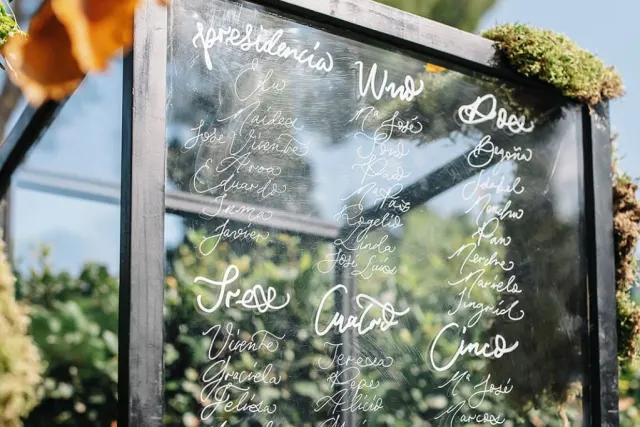 presidencia
Edu
Maidea
Jose Vicente
Ainoa
Eduardo
Irma
Javier
Uno
Mª José
Rogelio
Linda
José Luis
Dos
Begoña
Isabel
Nacho
Pan
Merche
Marcelo
Ingrid
Tres
Vicente
Graciela
Felisa
Cuatro
Teresa
Pepe
Alicia
Cinco
Mª José
Marcos